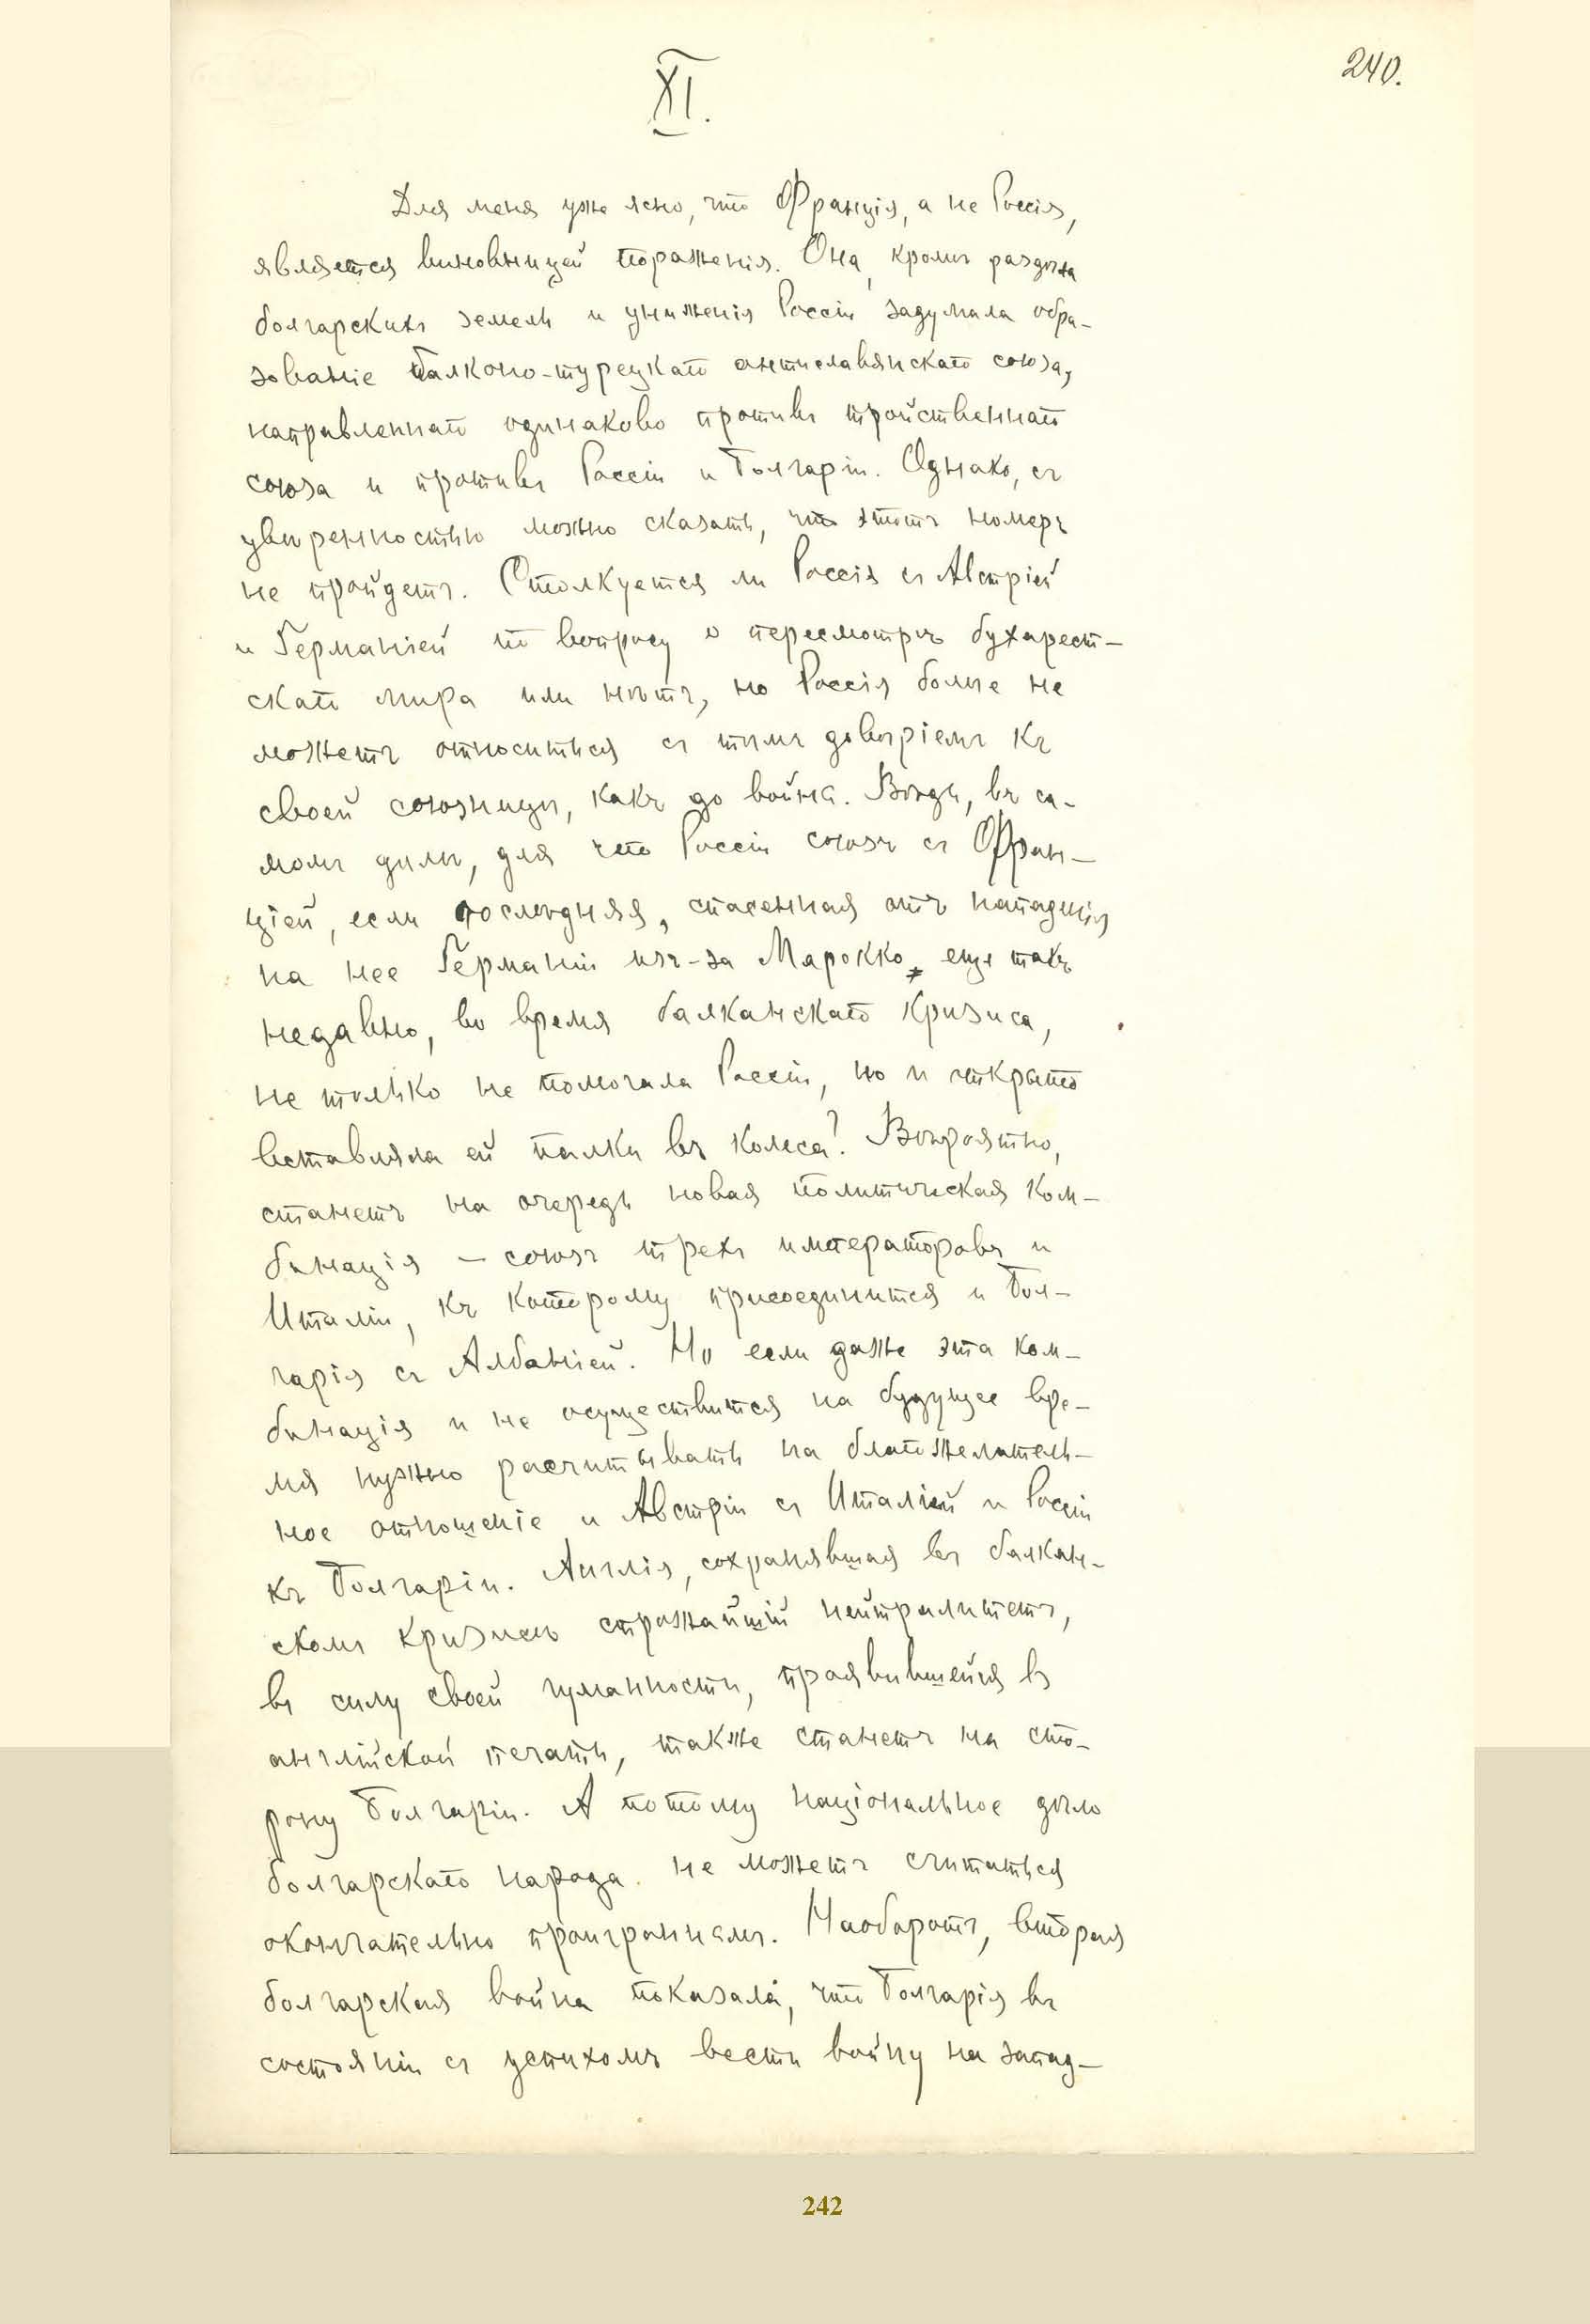 240.
XI.
Для меня уже ясно, что Франція, а не Россія,
является виновницей пораженія. Она, кромѣ раздѣла
болгарскихъ земель и униженія Россіи задумала обра-
зованіе балкано-турецкаго антиславянскаго союза,
направленнаго одинаково противъ тройственнаго
союза и противъ Россіи и Болгаріи. Однако, съ
увѣренностью можно сказать, что этотъ номеръ
не пройдетъ. Столкуется ли Россія съ Австріей
и Германіей по вопросу о пересмотрѣ бухарест-
скаго мира или нѣтъ, но Россія болѣе не
можетъ относиться съ тѣмъ довѣріемъ къ
своей союзницѣ, какъ до войны. Вѣдь, въ са-
момъ дѣлѣ, для чего Россіи союзъ съ Фран-
ціей, если послѣдняя, спасенная отъ нападенія
на нее Германіи изъ-за Марокко, еще такъ
недавно, во время балканскаго кризиса,
не только не помогала Россіи, но и открыто
вставляла ей палки въ колеса? Вѣроятно,
станетъ на очередь новая политическая ком-
бинація – союзъ трехъ императоровъ и
Италіи, къ которому присоединится и Бол-
гарія съ Албаніей. Но если даже эта ком-
бинація и не осуществится на будущее вре-
мя нужно расчитывать на благожелатель-
ное отношеніе и Австріи съ Италіей и Россіи
къ Болгаріи. Англія, сохранявшая въ балкан-
скомъ кризисѣ строжайшій нейтралитетъ,
въ силу своей гуманности, проявившейся въ
англійской печати, также станетъ на сто-
рону Болгаріи. А потому національное дѣло
болгарскаго народа не можетъ считаться
окончательно проиграннымъ. Наоборотъ, вторая
болгарская война показала, что Болгарія въ
состояніи съ успѣхомъ вести войну на запад-
242